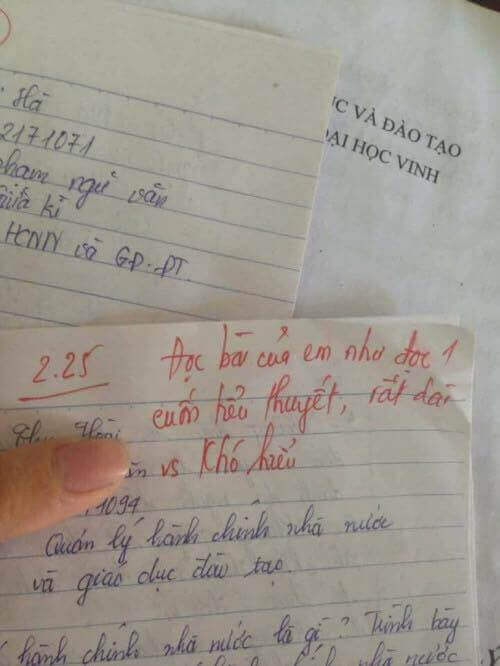 Hà
2171071
phạm ngữ văn
giữa kì
HCNN và GD-ĐT
ỤC VÀ ĐÀO TẠO
ĐẠI HỌC VINH
2.25
Đọc bài của em như đọc 1
cuốn tiểu thuyết, rất dài
vs Khó hiểu
Hoài
1094
Quản lý hành chính nhà nước
và giáo dục đào tạo.
hành chính nhà nước là gì? Trình bày
hành chính nhà nước